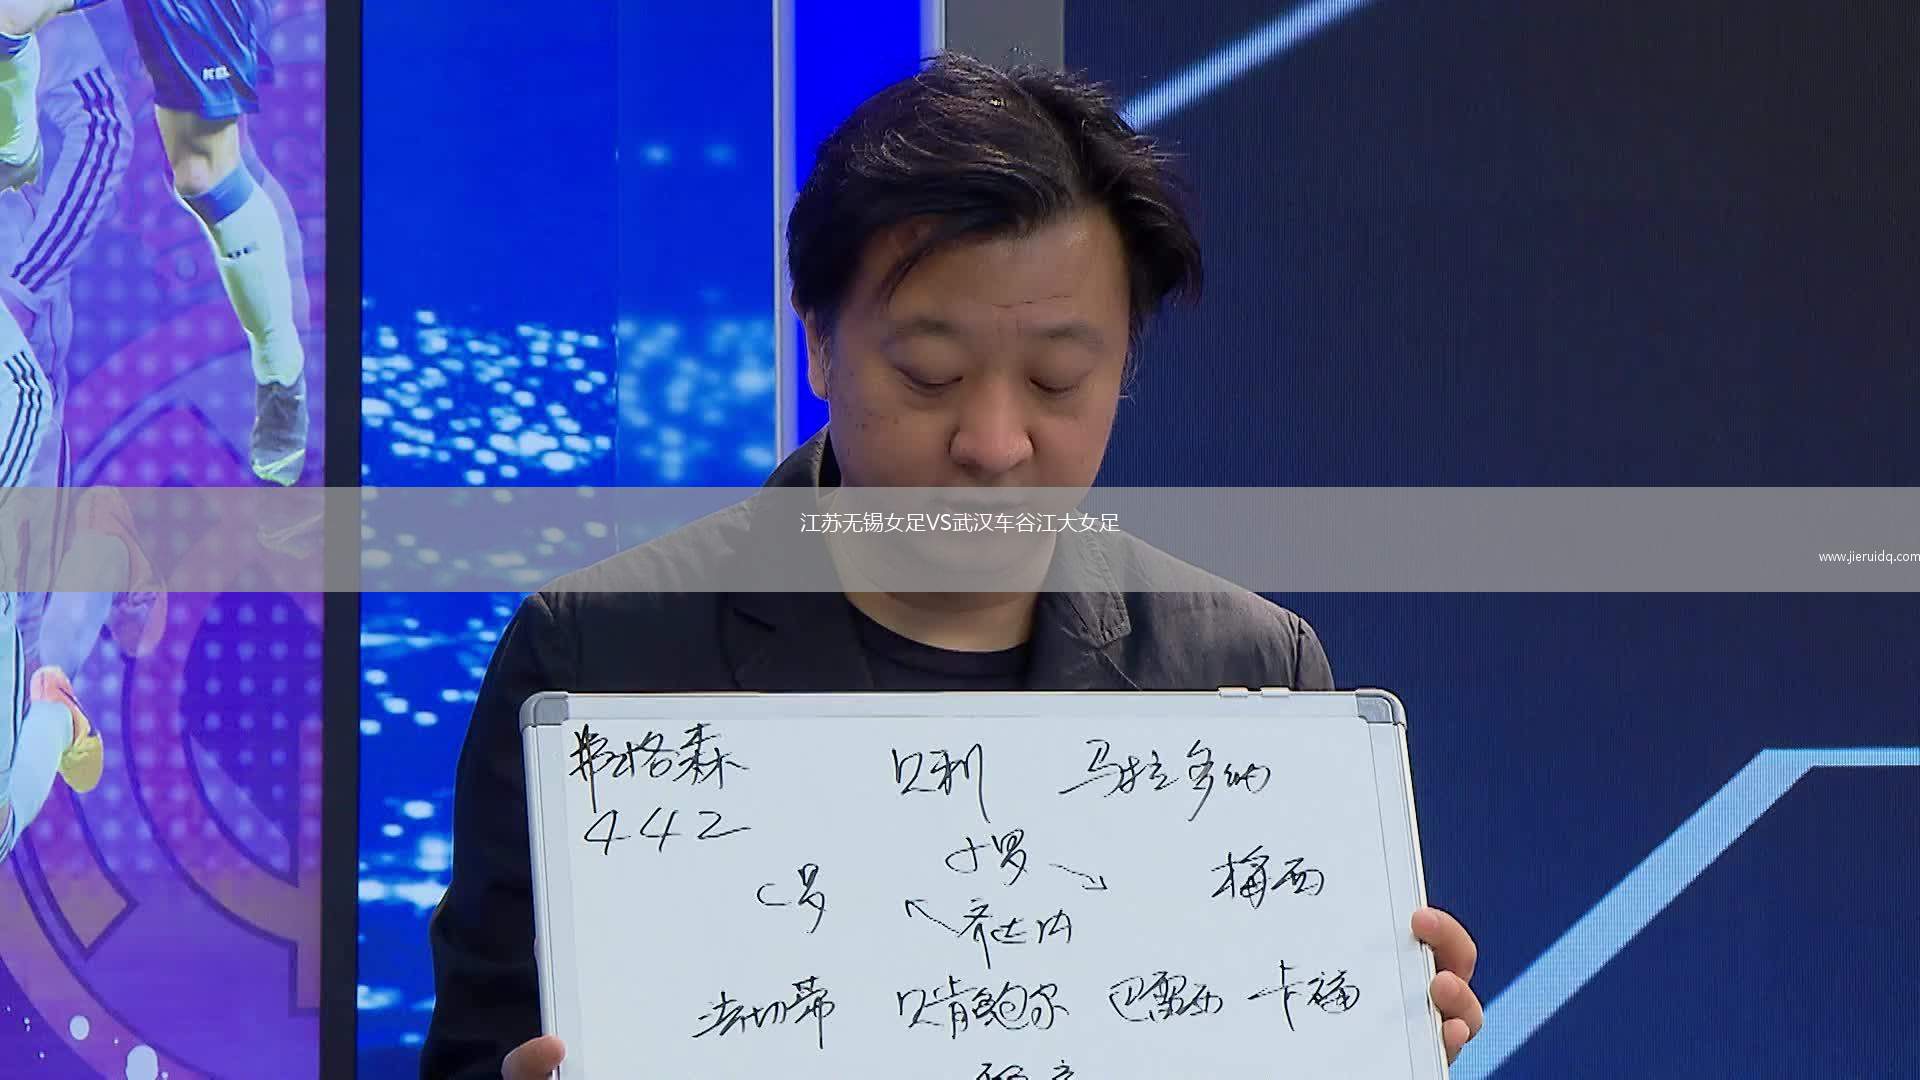 江苏无锡女足VS武汉车谷江大女足
www.jieruidq.com
弗格森 贝利 马拉多纳
442
小罗
C罗 梅西
齐达内
法切蒂 贝肯鲍尔 巴雷西 卡福